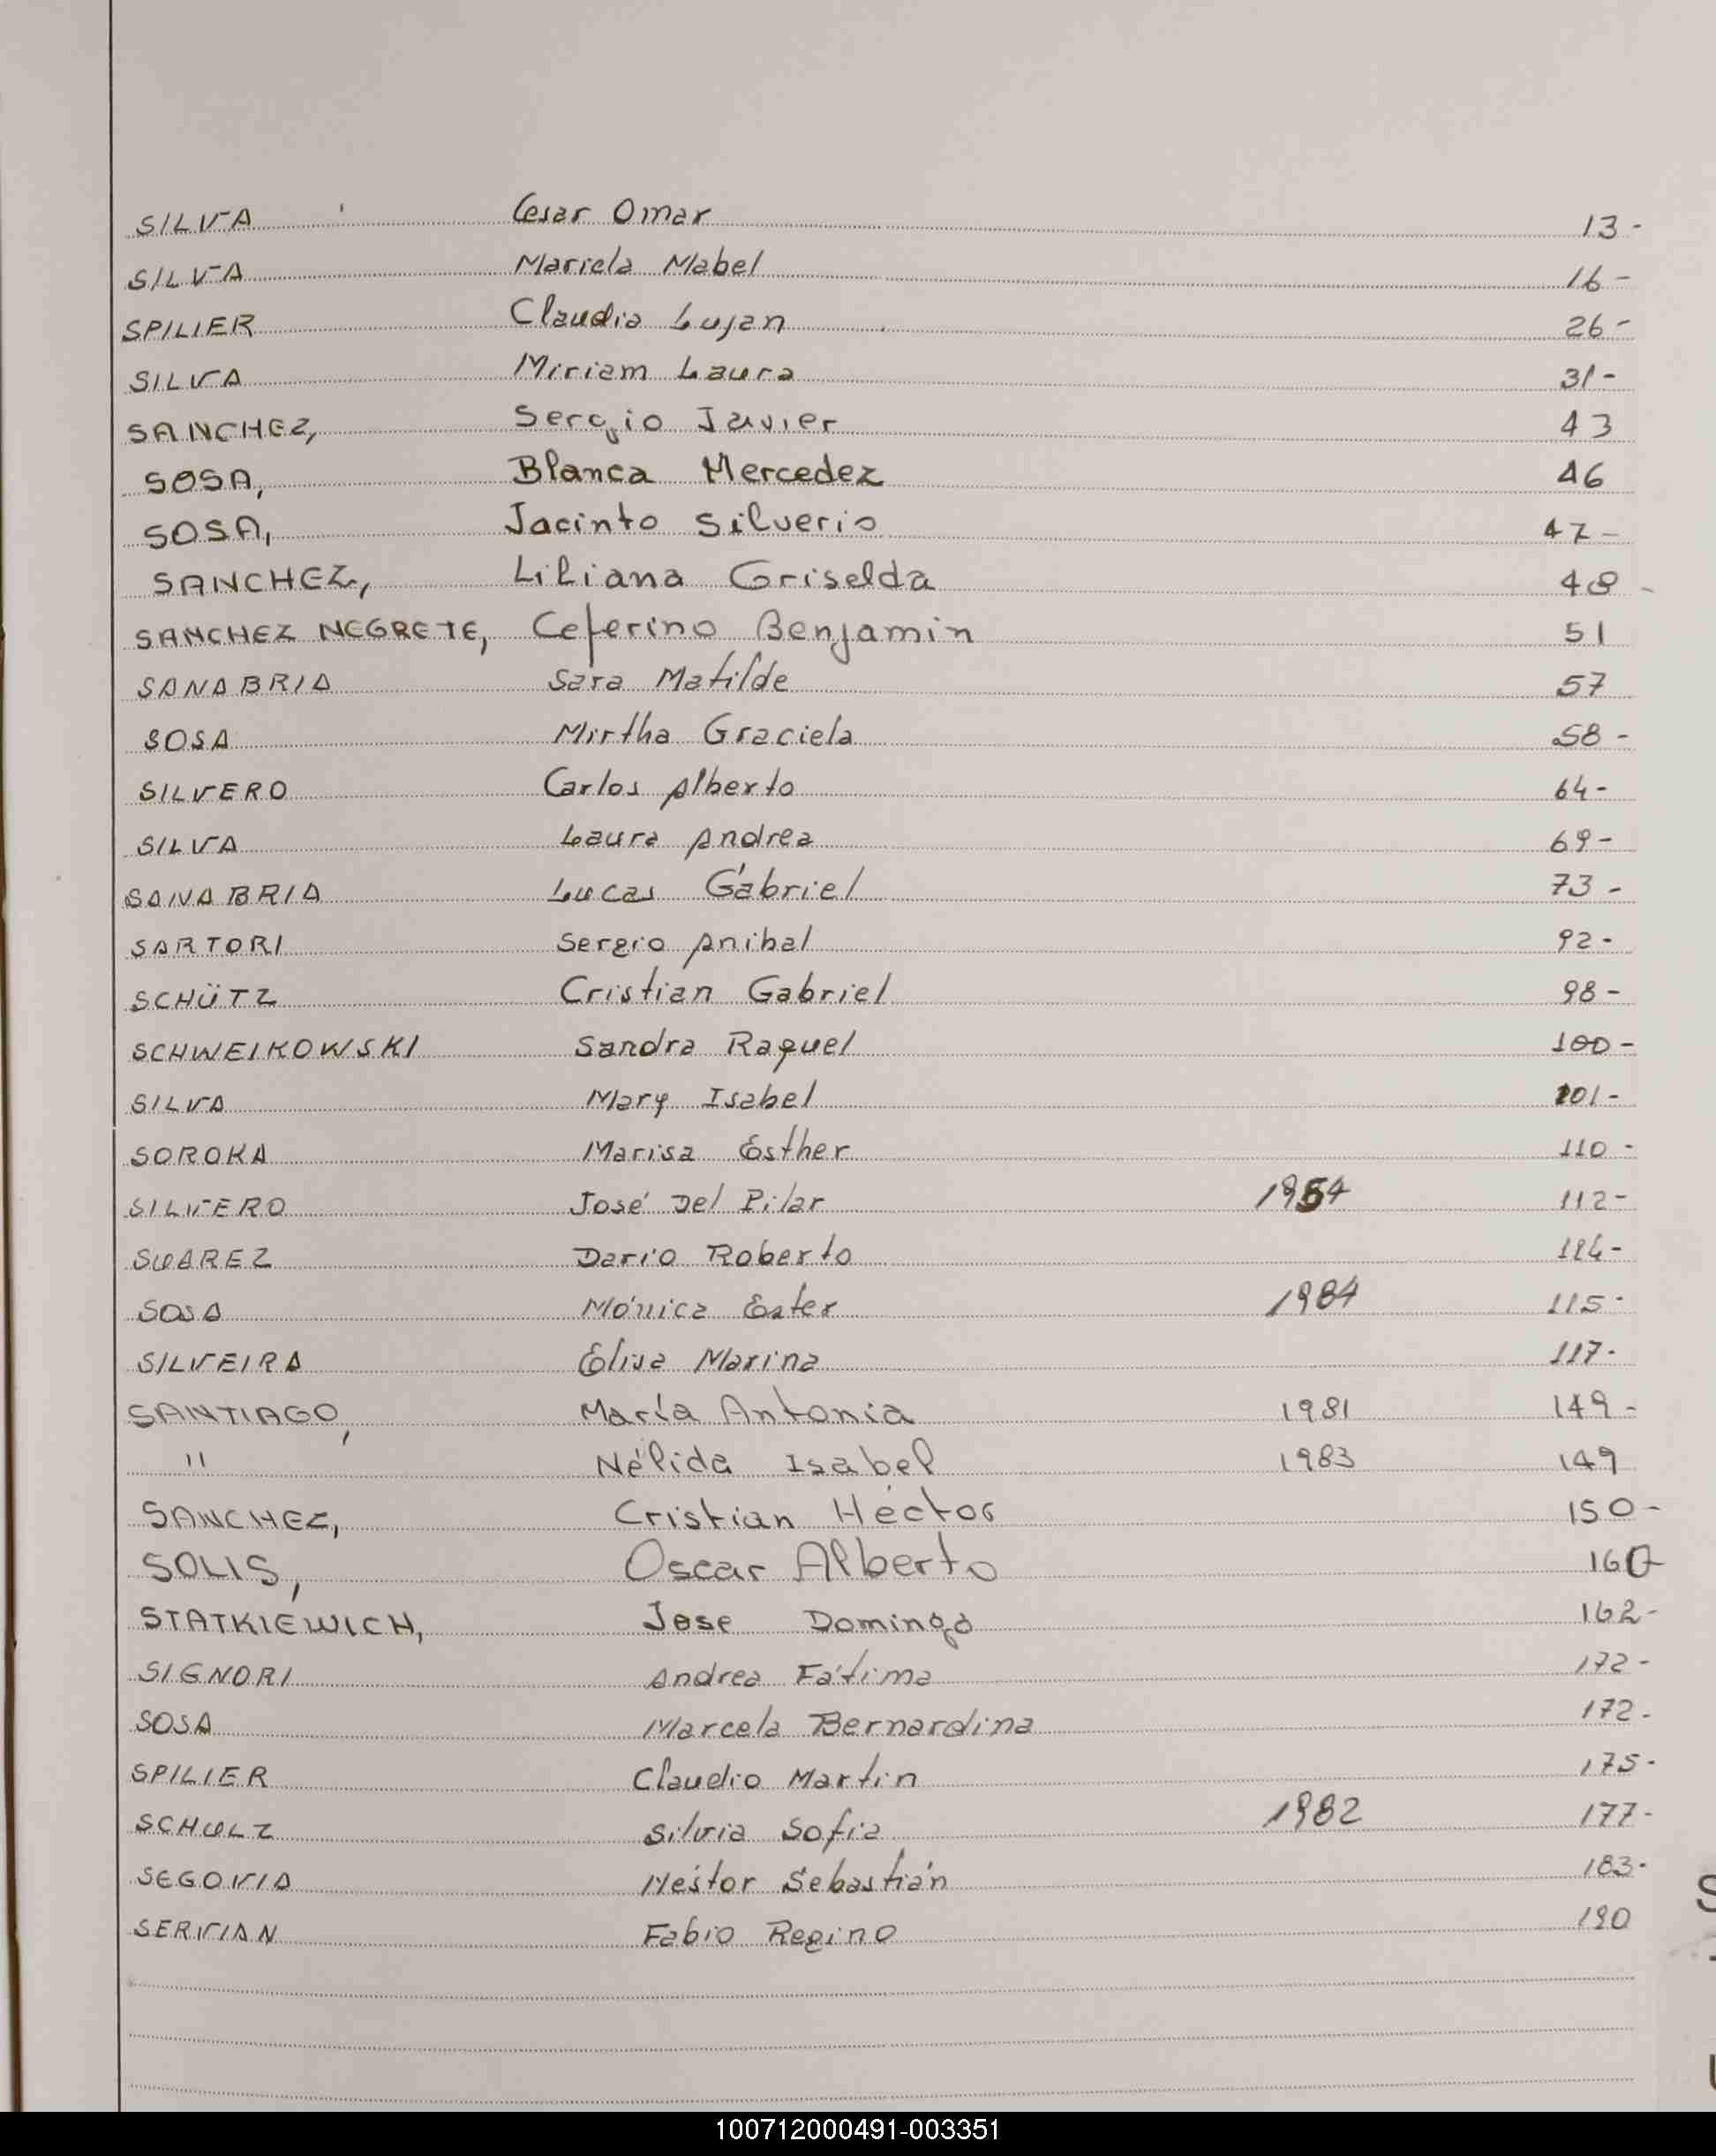 SILVA Cesar Omar 13-
SILVA Mariela Mabel 16-
SPILIER Claudia Lujan 26-
SILVA Miriam Laura 31-
SANCHEZ, Sergio Javier 43
SOSA, Blanca Mercedez 46
SOSA, Jacinto Silverio 47-
SANCHEZ, Liliana Griselda 48-
SANCHEZ NEGRETE, Ceferino Benjamin 51
SANABRIA Sara Matilde 57
SOSA Mirtha Graciela 58-
SILVERO Carlos Alberto 64-
SILVA Laura Andrea 69-
SANABRIA Lucas Gabriel 73-
SARTORI Sergio Anibal 92-
SCHÜTZ Cristian Gabriel 98-
SCHWEIKOWSKI Sandra Raquel 100-
SILVA Mary Isabel 101-
SOROKA Marisa Esther 110-
SILVERO José Del Pilar 1984 112-
SUAREZ Dario Roberto 114-
SOSA Mónica Ester 1984 115-
SILVEIRA Elisa Marina 117-
SANTIAGO, María Antonia 1981 149-
" Nélida Isabel 1983 149
SANCHEZ, Cristian Héctor 150-
SOLIS, Oscar Alberto 160-
STATKIEWICH, Jose Domingo 162-
SIGNORI Andrea Fátima 172-
SOSA Marcela Bernardina 172-
SPILIER Claudio Martin 175-
SCHULZ Silvia Sofia 1982 177-
SEGOVIA Néstor Sebastián 183-
SERVIAN Fabio Regino 190
100712000491-003351